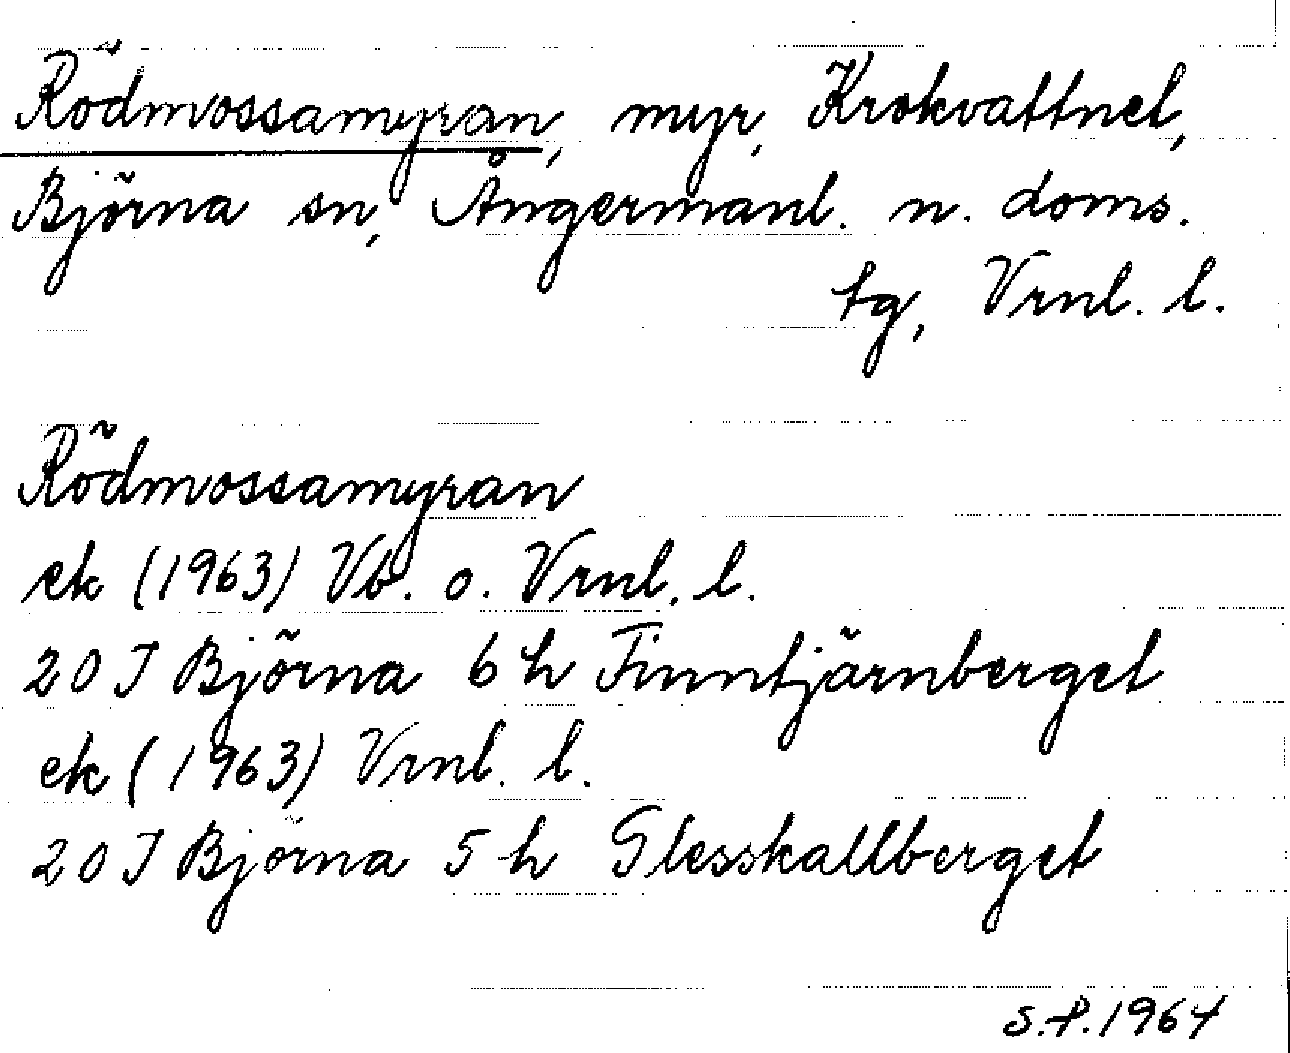 Rödmossamyran, myr, Krokvattnet,
Björna sn, Ångermanl. n. doms.
tg, Vrnl. l.
Rödmossamyran
ek (1963) Vb. o. Vrnl. l.
20 J Björna 6 h Finntjärnberget
ek (1963) Vrnl. l.
20 J Björna 5 h Glesskallberget
S.P. 1964